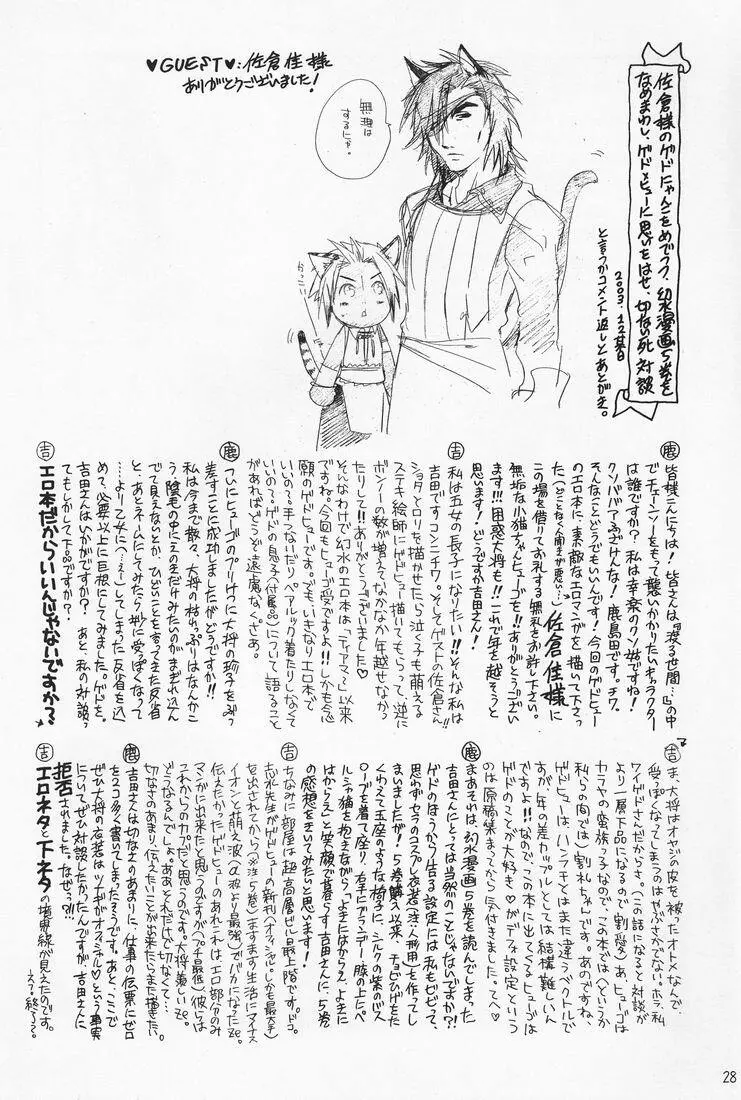 ♥GUEST♥:佐倉佳様
ありがとうございました!
無理は
するにゃ。
かっこいい
佐倉様のゲドにゃんこをめでつつ、幻水漫画5巻を
なめまわし、ゲド×ヒューに思いをはせ、切ない死対談
2003.12某日
と言うかコメント返しとあとがき。
鹿 皆様こんにちは!皆さんは『渡る世間…』の中
でチェーンソーをもって襲いかかりたいキャラクター
は誰ですか?私は幸楽のクソ姑ですね!
クソババアふざけんな!鹿島田です。チワ。
そんなことどうでもいいんです!今回のゲドヒュー
のエロ本に、素敵なエロマンガを描いて下さっ
た 佐倉佳様に
この場を借りてお礼する無礼をお許し下さい。
無垢な小猫ちゃんヒューゴ!!ありがとうござい
ます!!!困惑大将も!!これで年を越そうと
思います!どうですか吉田さん!
吉 私は五女の長子になりたい!!そんな私は
吉田ですコンニチワ。そしてゲストの佐倉さん!!
ショタとロリを描かせたら泣く子も萌える
ステキ絵師にゲドヒュー描いてもらって、逆に
ボンノーの数が増えてなかなか年越せなかっ
たりして!!ありがとうございました♡
そんなわけで幻水のエロ本は「ティアマ〜」以来
ですね。今回もヒューゴ受ですよ!!しかも念
願のゲドヒューです。でも、いきなりエロ本で
いいの?手つないだり、ペアルック着たりしなくて
いいの?ゲドの息子(付属品)について語ること
があればどうぞ遠慮なくさあ。
鹿 ついにヒューゴのプリケツに大将の珍子をぶっ
差すことに成功しましたがどうですか!!
私は今まで散々、大将の枯れっぷりはなんかこ
う、陰毛の中にえのきだけみたいのがまぎれ込ん
で見えないとか、ひどいことを言ってきた反省
と、あとネームにしてみたら妙に受っぽくなって
…より乙女に(うぇー)してしまった反省を込
めて、必要以上に巨根にしてみました。ゲドを。
吉田さんはいかがですか?あと、私の対談っ
てもしかして下品ですか?
吉 エロ本だからいいんじゃないですか?
吉 ま、大将はオヤジの皮を被ったオトメなんで、
受っぽくなってしまうのはやぶさかでない。ホラ、私
ワイゲドさんだからさ。(この話になると対談が
より一層下品になるので割愛)あ、ヒューゴは
カラヤの蛮族っ子なので、この本では(というか
私らの間では)割礼ちゃんです。あのですね、
ゲドヒューは、ハンチチとはまた違うベクトルで
すが、年の差カップルとしては結構難しいん
ですよ!!なので、この本に出てくるヒューゴは
ゲドのことが大好き♡がデフォ設定という
のは原稿集まってから気付きました。てへ♡
鹿 まあそれは、幻水漫画5巻を読んでしまった
吉田さんにとっては当然のことじゃないですか?!
ゲドのほうから告る設定には私もビビって、
思わずセラのコスプレ衣装(注・人形用)を作ってし
まいましたが!5巻購入以来、チョビひげをた
くわえて王座のような椅子に、シルクの紫のバス
ローブを着て座り、右手にブランデー膝の上にペ
ルシャ猫を抱えながら、「よきにはからえ、よきに
はからえ」と笑顔で暮らす吉田さんに、5巻
の感想をきいてみたいと思います!
吉 ちなみに部屋は超高層ビル最上階です。ドコ。
志水先生がゲドヒューの新刊(オフィシャル。しかも最大手)
を出されてから(※注:5巻)ますます生活にマイナス
イオンと萌え波(α波より最強)でバカになったze。
伝えたかったゲドヒューのあれこれは、エロ部分のみ
マンガに出来たと思うのですが(プチ最低)彼らは
これからの力だと思うのです。大将羨しいze。
どうなるんでしょ。ああ、そんだけで切なくて…
切なさのあまり、伝えたいことが出来たらまた描きたい。
鹿 吉田さんは切なさのあまりに、仕事の伝票にゼロ
を2コ多く書いてしまったそうです。あと、ここで
ぜひ大将の衣装はツナギがオフィシャル♡という事実
についてぜひ対談したかったんですが、吉田さんに
拒否されました。なぜっ?!!
吉 エロネタと下ネタの境界線が見えたのです。
28